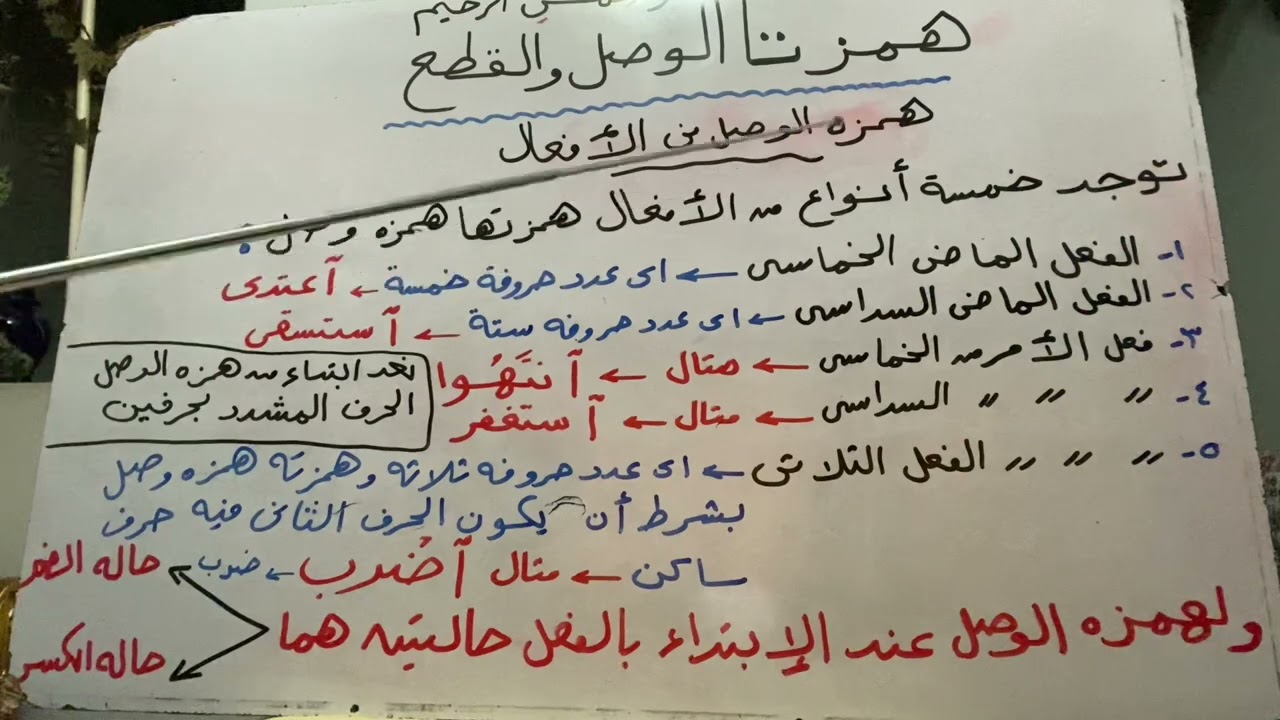 الرحيم
همزتا الوصل والقطع
همزه الوصل فى الأفعال
توجد خمسة أنواع من الأفعال همزتها همزه وصل :
١- الفعل الماضى الخماسى ← اى عدد حروفة خمسة ← آعتدى
٢- الفعل الماضى السداسى ← اى عدد حروفه ستة ← آستسقى
٣- فعل الأمر من الخماسى ← مثال ← آنتَهُوا
٤- " " " السداسى ← مثال ← آستغفر
يعد البناء من همزه الوصل
الحرف المشدد بحرفين
٥- " " " الفعل الثلاثى ← اى عدد حروفه ثلاثه وهمزته همزه وصل
بشرط أن يكون الحرف الثانى فيه حرف
ساكن ← مثال آضْرب ← ضرب
ولهمزه الوصل عند الإبتداء بالفعل حالتين هما
حاله الضم
حاله الكسر